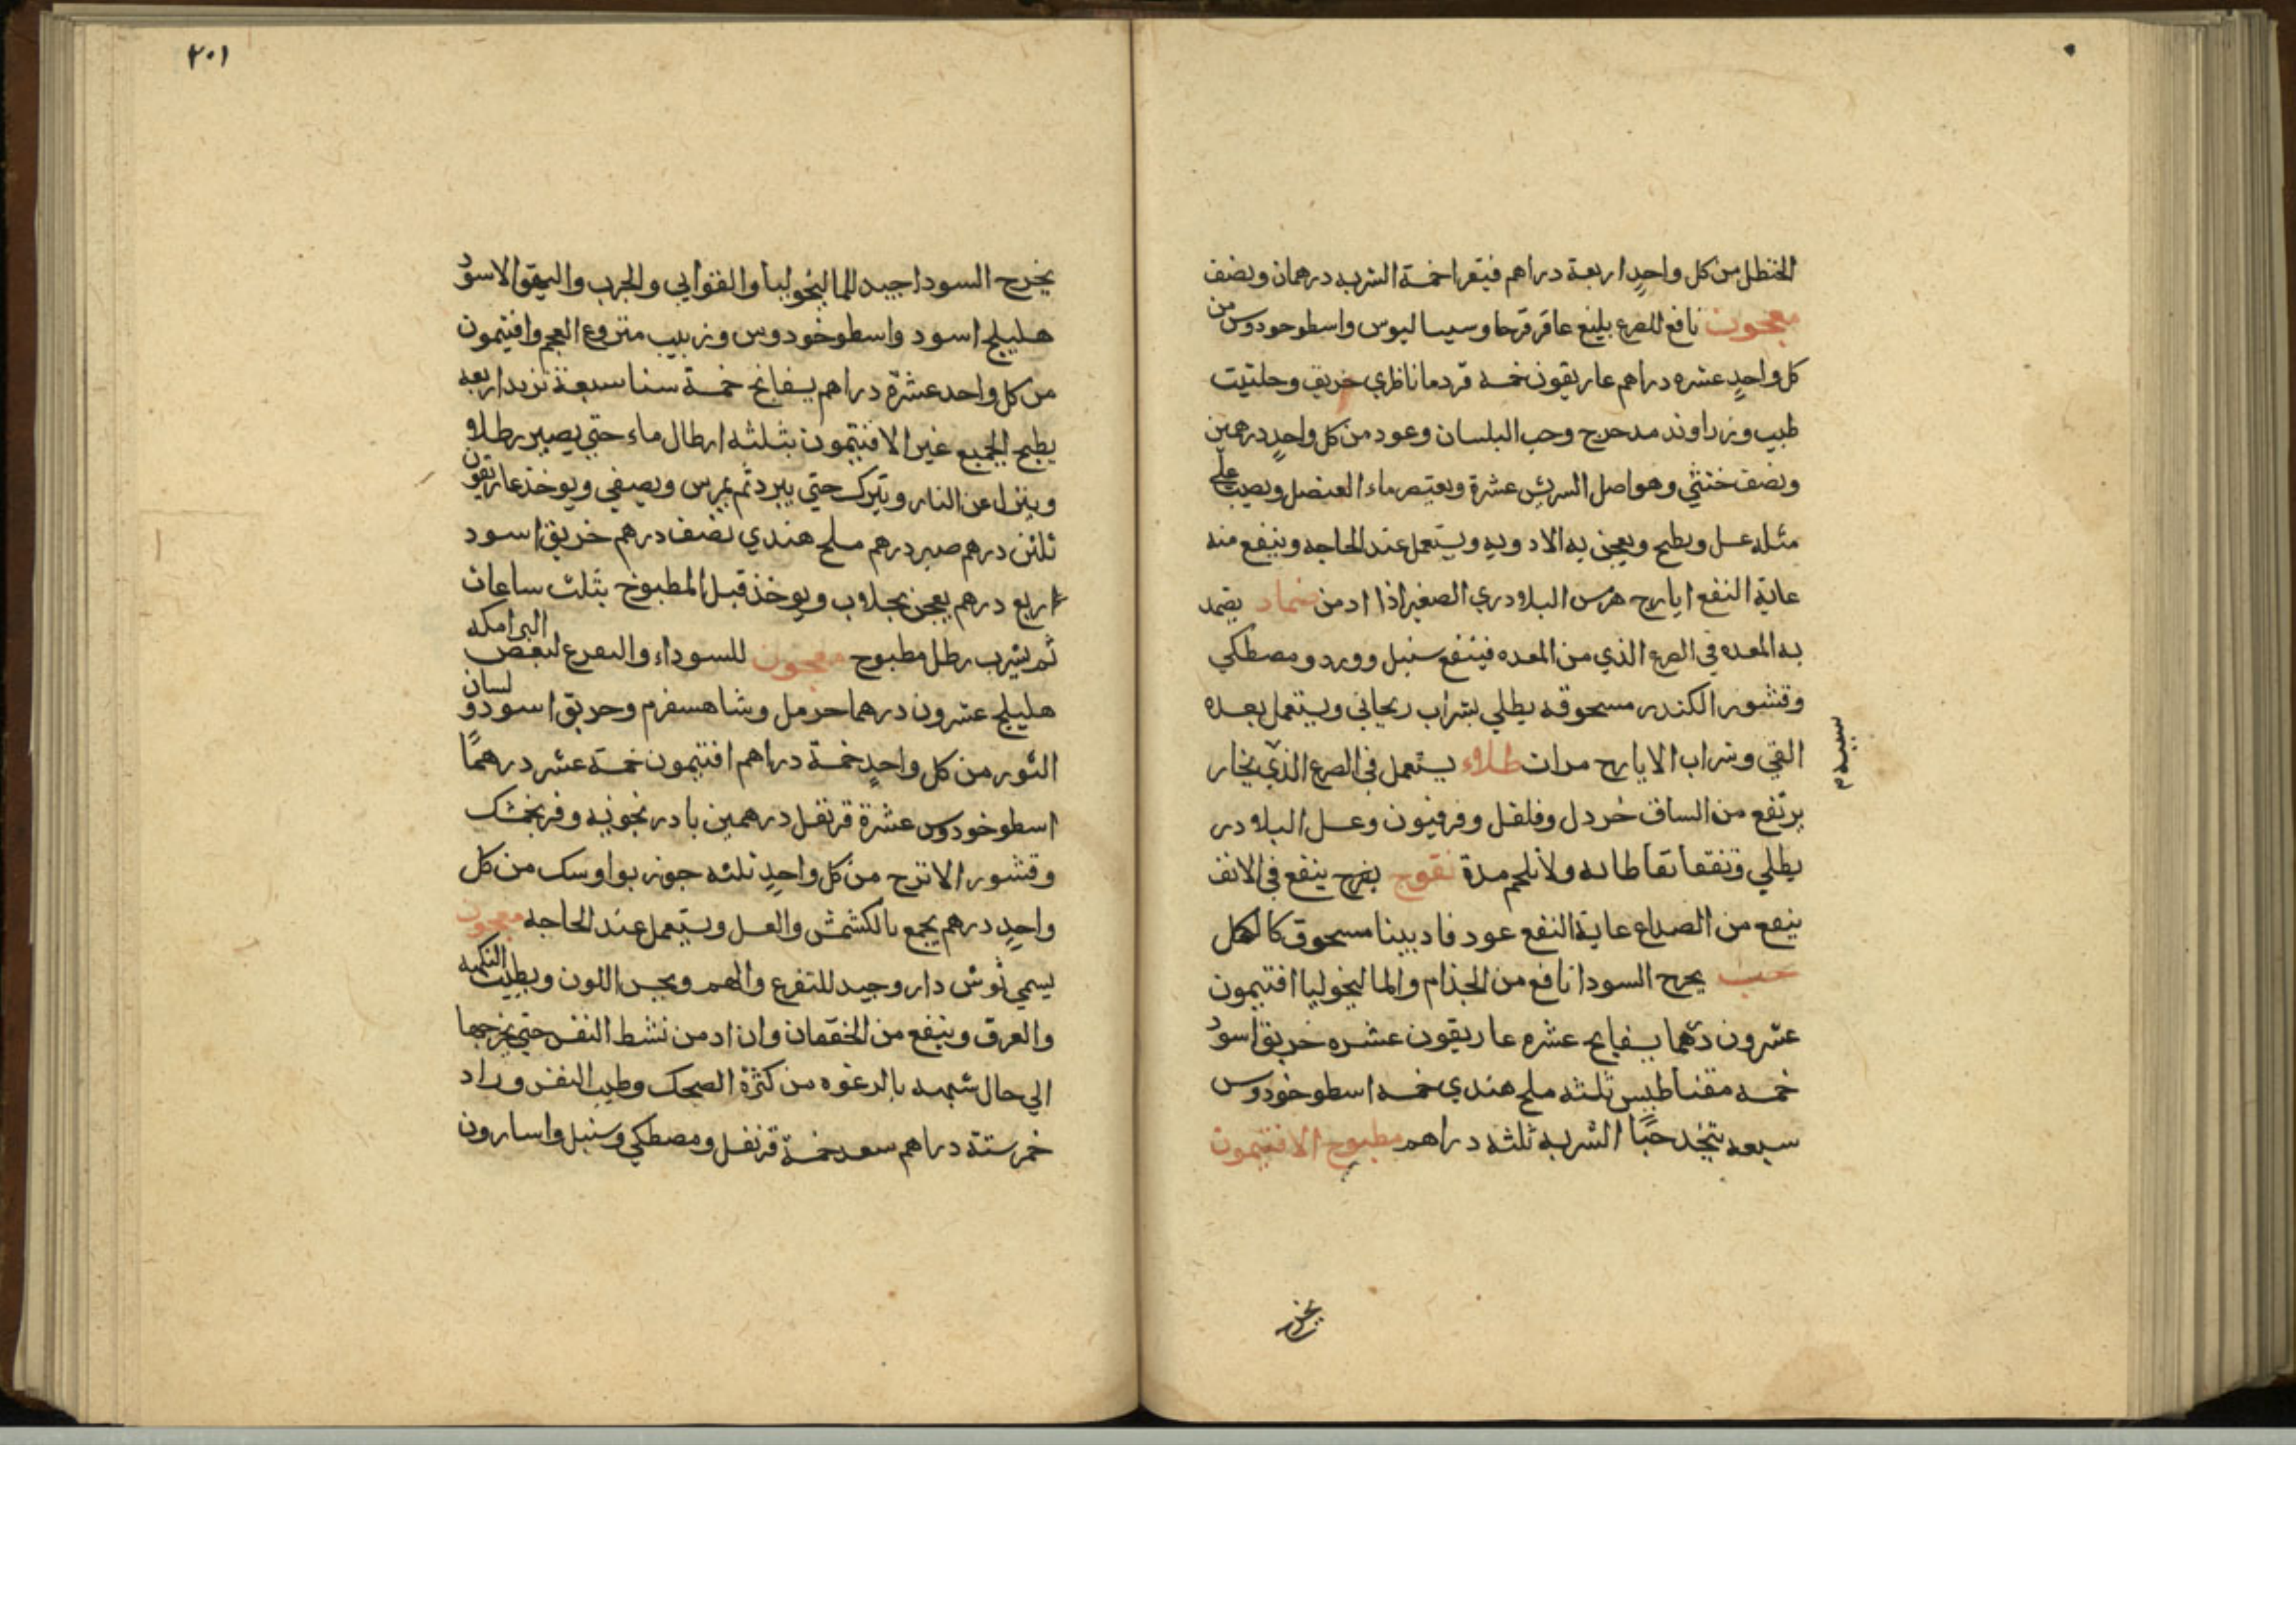 الحنظل من كل واحدٍ اربعة دراهم فيقرا خمسة الشربه درهمان ونصف
معجون نافع للصرع بليغ عاقر قرحا وسيساليوس واسطوخودوس من
كل واحدٍ عشره دراهم غاريقون خمسه قردمانا ظري خريق وحلتيت
طيب وزراوند مدحرج وحب البلسان وعود من كل واحدٍ درهمين
ونصف خنثي وهو اصل السريش عشرة ويعتصر ماء العنصل ويصب علي
مثله عسل ويطبخ ويعجن به الادويه ويستعمل عند الحاجه وينفع منه
غاية النفع ايارج هرمس البلادري الصغير اذا ادمن ضماد يضمد
به المعده في الصرع الذي من المعده فينفع سنبل وورد ومصطكي
وقشور الكندر مسحوقه يطلي بشراب ريحاني ويستعمل بعده
القي وشراب الايارج مرات طلاء يستعمل في الصرع الذي بخار
يرتفع من الساق خردل وفلفل وفرفيون وعسل البلادر
يطلي وتنفقا نفاطاته ولا تلحم مدة نفوخ ينفع في الانف
ينفع من الصداع غاية النفع عود فاديينا مسحوق كالكحل
حب يخرج السودا نافع من الجذام والماليخوليا افتيمون
عشرون درهما بسفايج عشره غاريقون عشره خربق اسود
خمسه مقناطيس ثلثه ملح هندي خمسه اسطوخودوس
سبعه يتخذ حبًا الشربه ثلثه دراهم مطبوخ الافتيمون
يخرج
٢٠١
يخرج السودا جيد للماليخوليا والقوابي والجرب والبهق الاسود
هليلج اسود واسطوخودوس وزبيب منزوع العجم وافتيمون
من كل واحد عشرة دراهم بسفايج خمسة سنا سبعة تربد اربعه
يطبخ الجميع غير الافتيمون بثلثه ارطال ماء حتي يصير رطلا و
وينزل عن النار ويترك حتي يبرد ثم يمرس ويصفي ويوخذ غاريقون
ثلثن درهم صبر درهم ملح هندي نصف درهم خربق اسود
اربع درهم يعجن بجلاب ويوخذ قبل المطبوخ بثلث ساعات
ثم يشرب رطل مطبوخ معجون للسوداء والصرع لبعض البرامكه
هليلج عشرون درهما حرمل وشاهسفرم وخربق اسود و لسان
الثور من كل واحدٍ خمسة دراهم افتيمون خمسة عشر درهمًا
اسطوخودوس عشرة قرنفل درهمين بادرنجونيه وفرنجمشك
وقشور الاترج من كل واحدٍ ثلثه جوزبوا وسك من كل
واحدٍ درهم يجمع بالكشمش والعسل ويستعمل عند الحاجه معجون
يسمي نوش دارو جيد للتفرع والهم ويحسن اللون ويطيب النكهه
والعرق وينفع من الخفقان وان ادمن نشط النفس حتي يخرجها
الي حال شبيه بالرعونه من كثرة الضحك وطيب النفس وراد
خمر ستة دراهم سعد خمسة قرنفل ومصطكي وسنبل واسارون